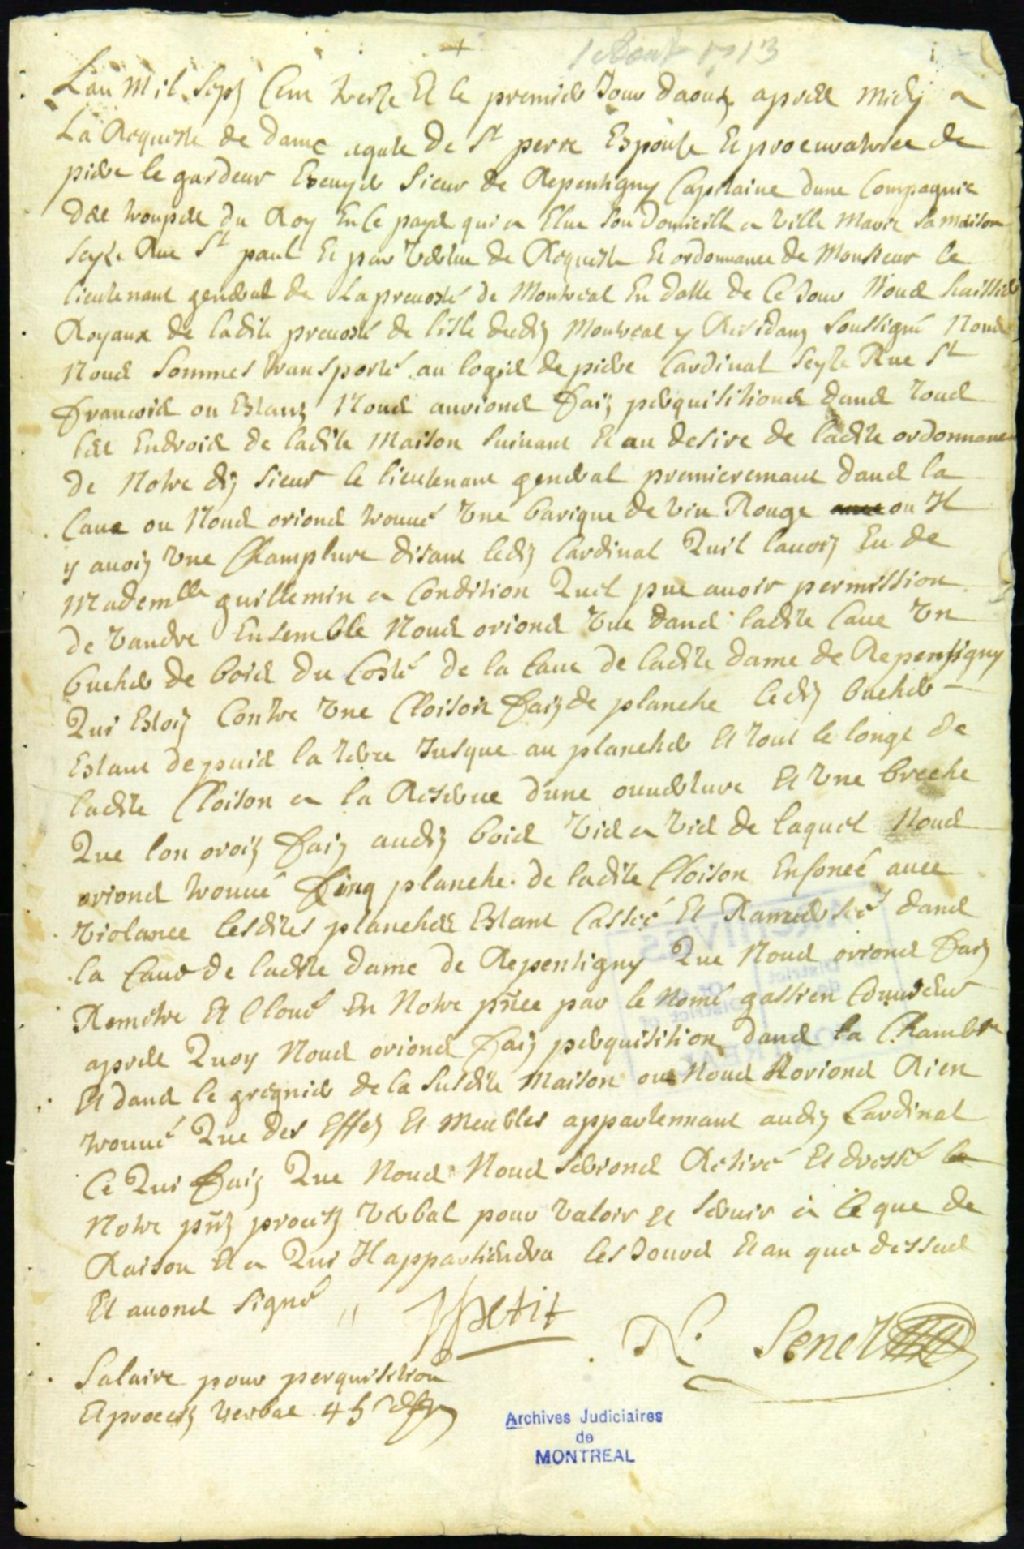 1 Aout 1713
Lan Mil Sept Cent treize Et le premier Jour daoust apres Midy a
La Requeste de dame agate de St perre Espouse Et procuratrice de
pierre le gardeur Escuyer Sieur de Repentigny Capitaine dune Compagnie
des troupes du Roy En Ce pays qui a Elue son domicille a ville Marie sa maison
seyze Rue St paul Et par vertue de Requeste Et ordonnance de Monsieur le
lieutenant general de La prevosté de Montreal En datte de Ce Jour Nous huissiers
Royaux de ladite prevosté de lisle dudit Montreal y Residant soussigné Nous
Nous Sommes transporté au logis de pierre Cardinal seyze Rue St
francois ou Estant Nous aurions fait perquisitions dans tous
les Endrois de ladite Maison suivant Et au desire de ladite ordonnance
de Notre dit Sieur le lieutenant general premieremant dans la
Cave ou Nous orions trouvé Une barique de vin Rouge ou Il
y avoit Une Champlure disant ledit Cardinal Quil lavoit Eu de
Mademlle guillemin a Condition Quil put avoir permission
de vandre Ensemble Nous orions Vue dans ladite Cave Un
bucher de bois du Costé de la Cave de ladite dame de Repentigny
Qui Estoit Contre Une Cloison fait de planche ledit bucher
Estant depuis la terre Jusque au plancher Et tout le longt de
ladite Cloison a la Reserve dune ouverture Et Une breche
Que lon oroit fait audit bois vis a vis de laquel Nous
orions trouvé Cinq planche de ladite Cloison Enfoncé avec
violance lesdites planches Estant Cassé Et Ranversé dans
la Cave de ladite dame de Repentigny Que Nous orions fait
Remetre Et Cloué En Notre pñce par le Nomé gastien
apres Quoy Nous orions fait perquisition dans la Chambre
Et dans le gregnier de la susdite Maison ou Nous Norions Rien
trouvé Que des Effet Et Meubles appartennant audit Cardinal
Ce Qui fait Que Nous Nous serions Retiré Et dressé
Notre pñt proucest verbal pour valoir Et servir a Ce que de
Raison Et a Qui Il appartiendra les Jours Et an que dessus
Et avons Signé
Petit
N. Senet
Salaire pour perquisition
Et procest verbal 4 h
Archives Judiciaires
de
MONTREAL